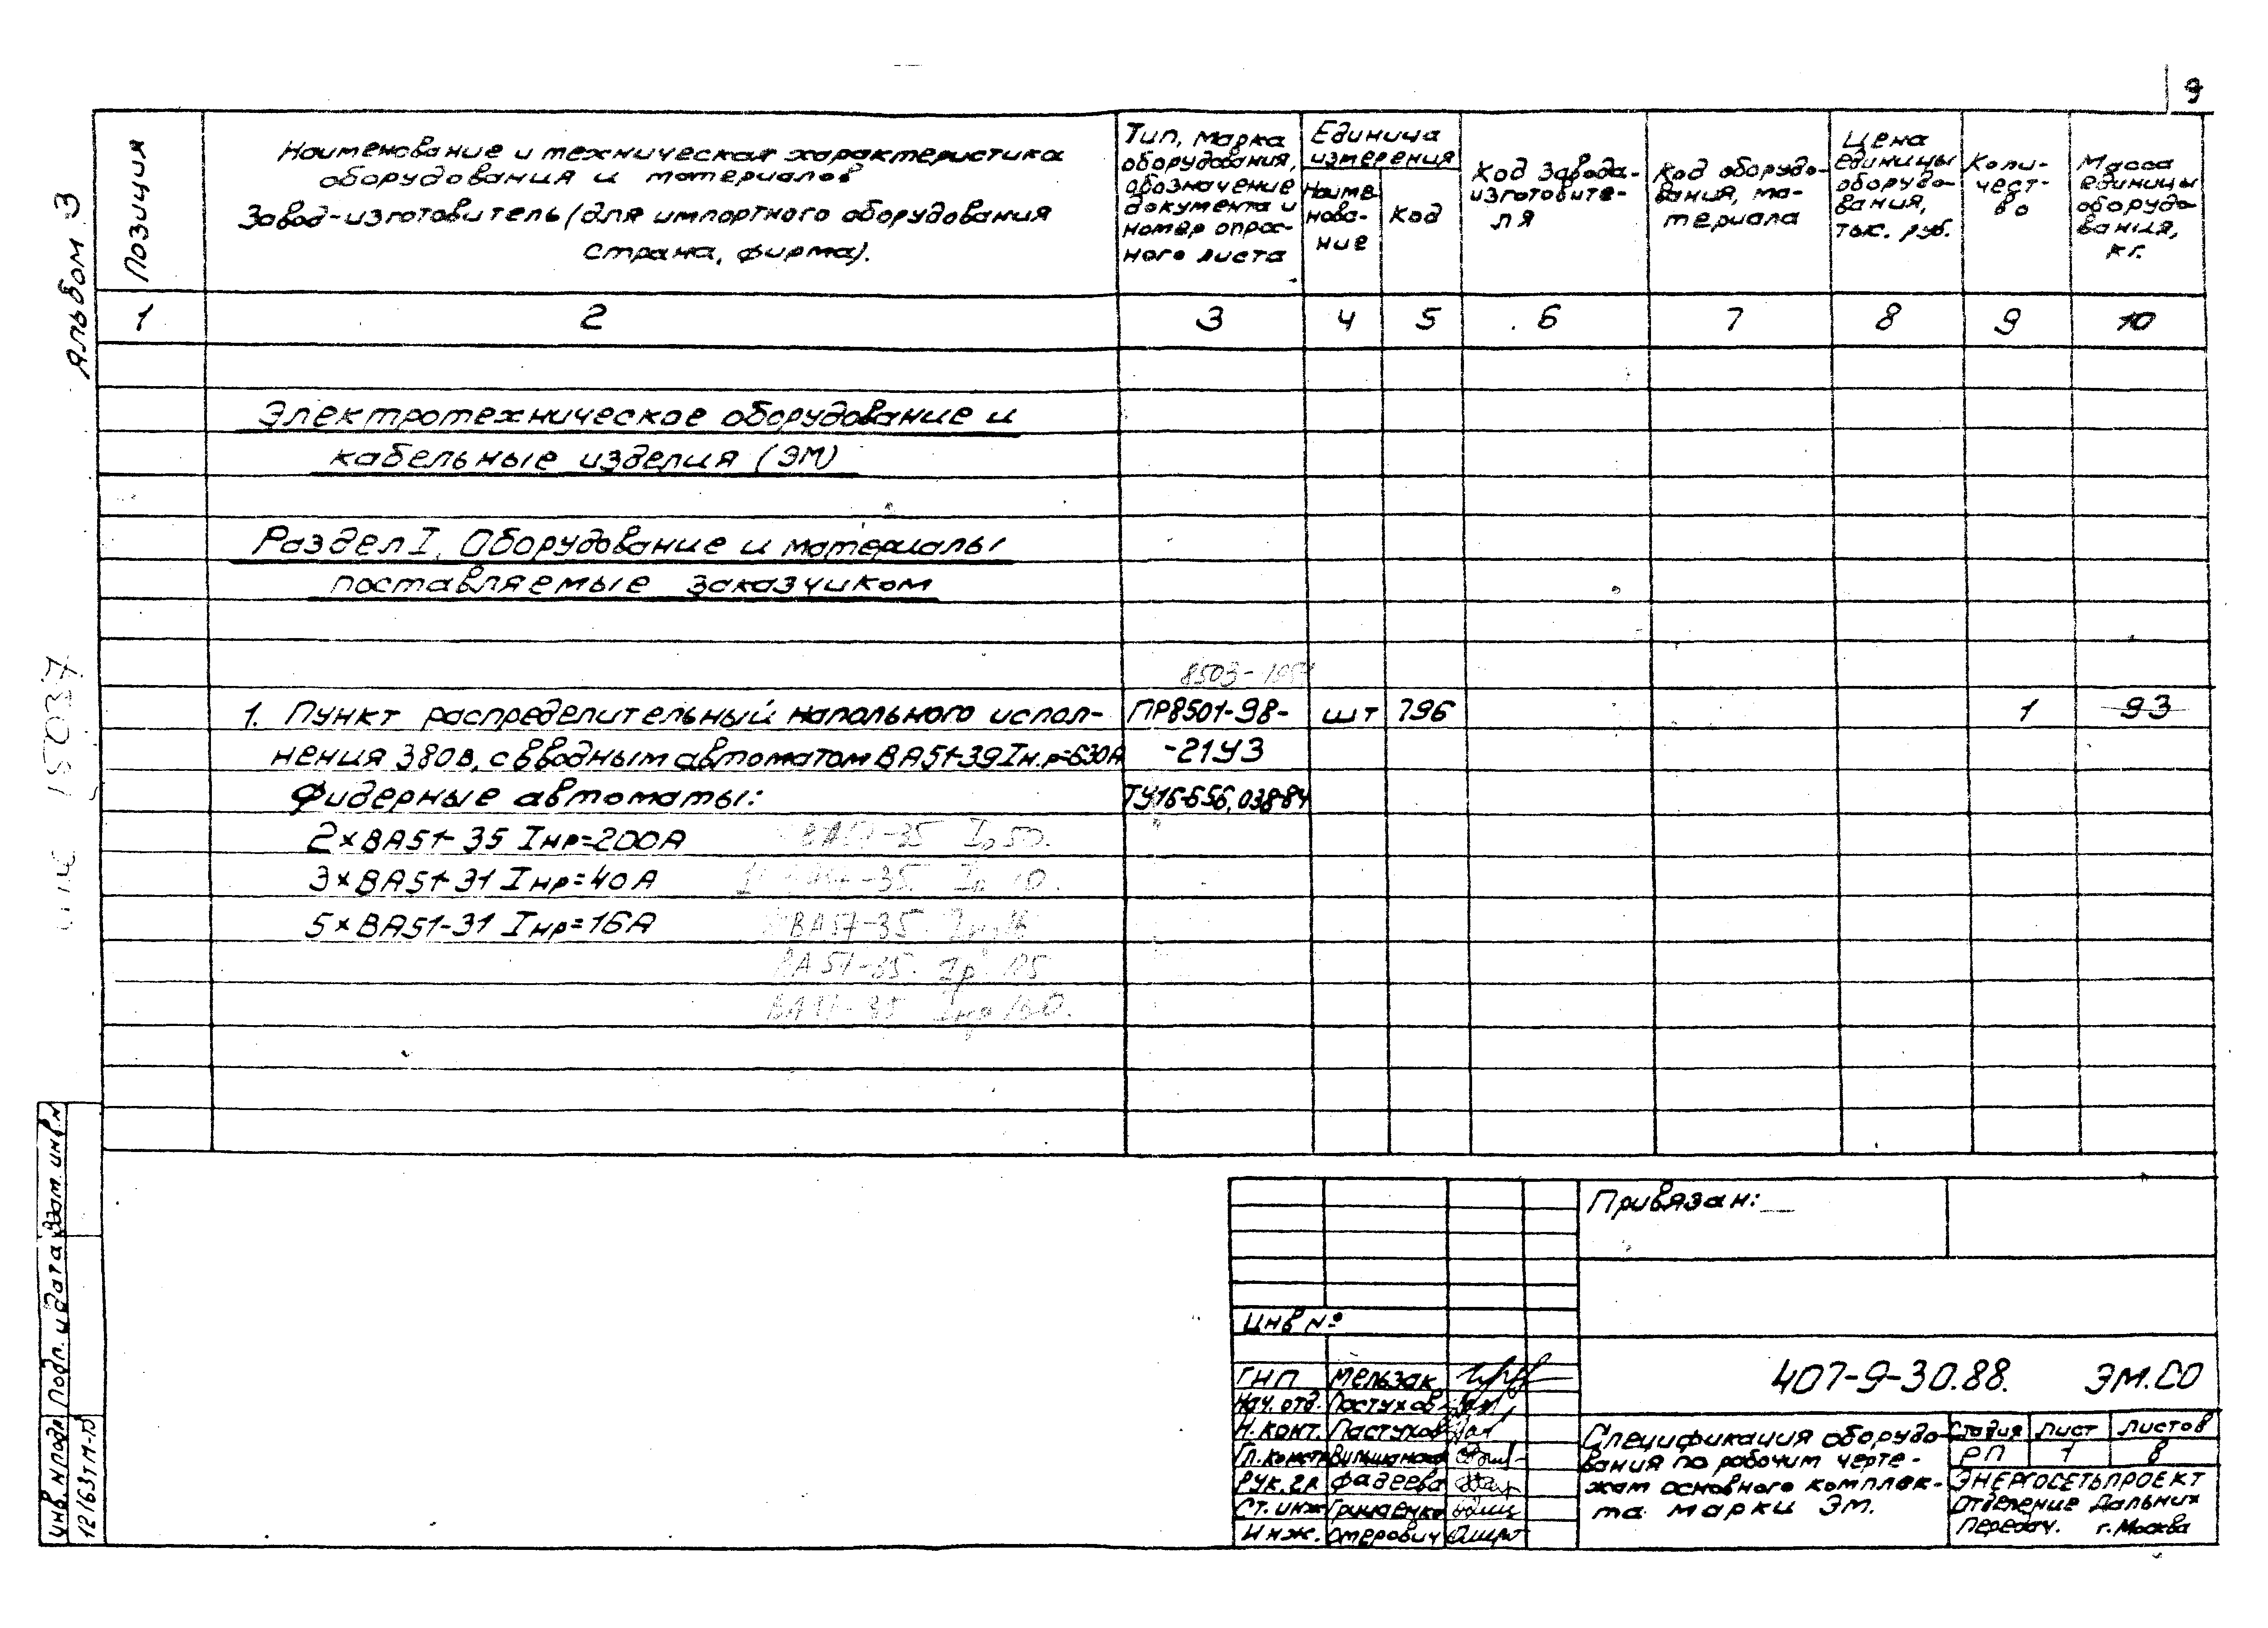 9
Альбом 3
Позиция
Наименование и техническая характеристика
оборудования и материалов
Завод-изготовитель (для импортного оборудования
страна, фирма).
Тип, марка
оборудования,
обозначение
документа и
номер опрос-
ного листа
Единица
измерения
Наиме-
нова-
ние
Код
Код завода-
изготовите-
ля
Код оборудо-
вания, ма-
териала
Цена
единицы
оборудо-
вания,
тыс. руб.
Коли-
чест-
во
Масса
единицы
оборудо
вания,
кг.
1 2 3 4 5 6 7 8 9 10
Электротехническое оборудование и
кабельные изделия (ЭМ)
Раздел I. Оборудование и материалы
поставляемые заказчиком
8503-
1. Пункт распределительный напольного испол- ПР8501-98- шт 796 1 93
нения 380в, с вводным автоматом ВА51-39 Iн.р=630А -21У3
Фидерные автоматы: ТУ16-656,038-84
2×ВА51-35 Iнр=200А ВА57-35
3×ВА51-31 Iнр=40А
5×ВА51-31 Iнр=16А ВА57-35
ВА57-35
ВА57-35
15037
Взам. инв.N
Подп. и дата
Инв. N подл
12163тм-
Привязан:
Инв №
407-9-30.88. ЭМ.СО
ГИП Мельзак
Нач. отд. Пастухов
Н. конт. Пастухов
Гл. констр
Рук. гр Фадеева
Ст. инж Гринаенко
Инж. Отерович
Спецификация оборудо-
вания по рабочим черте-
жам основного комплек-
та марки ЭМ.
Стадия Лист Листов
РП 1 8
ЭНЕРГОСЕТЬПРОЕКТ
Отделение Дальних
Передач. г. Москва